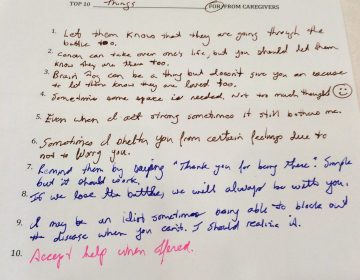 TOP 10 Things FOR/FROM CAREGIVERS
1. Lets them know that they are going through the
battle too.
2. Cancer can take over one's life, but you should let them
know they are there too.
3. Brain fog can be a thing but doesn't give you an excuse
to let them know they are loved too.
4. Sometimes some space is needed. Not too much though
5. Even when I act strong sometimes it still bothers me.
6. Sometimes I shelter you from certain feelings due to
not to worry you.
7. Remind them by saying "Thank you for being there". Simple
but it should work.
8. If we lose the battle, we will always be with you.
9. I may be an idiot sometimes being able to block out
the disease when you can't. I should realize it.
10. Accept help when offered.